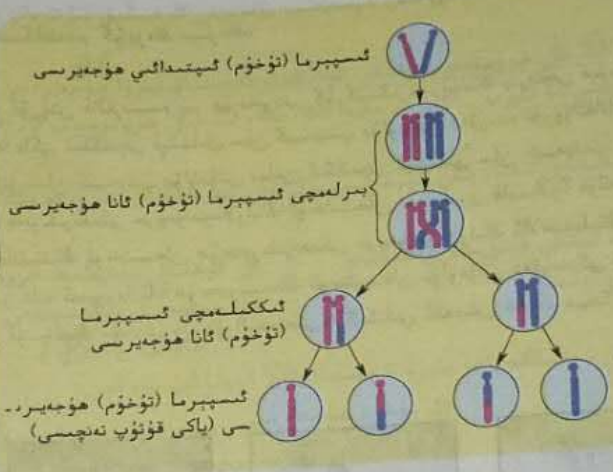 ئىسپېرما (تۇخۇم) ئىپتىدائىي ھۈجەيرىسى
بىرلەمچى ئىسپېرما (تۇخۇم) ئانا ھۈجەيرىسى
ئىككىلەمچى ئىسپېرما
(تۇخۇم) ئانا ھۈجەيرىسى
ئىسپېرما (تۇخۇم) ھۈجەيرىـ
ـسى (ياكى قۇتۇپ تەنچىسى)